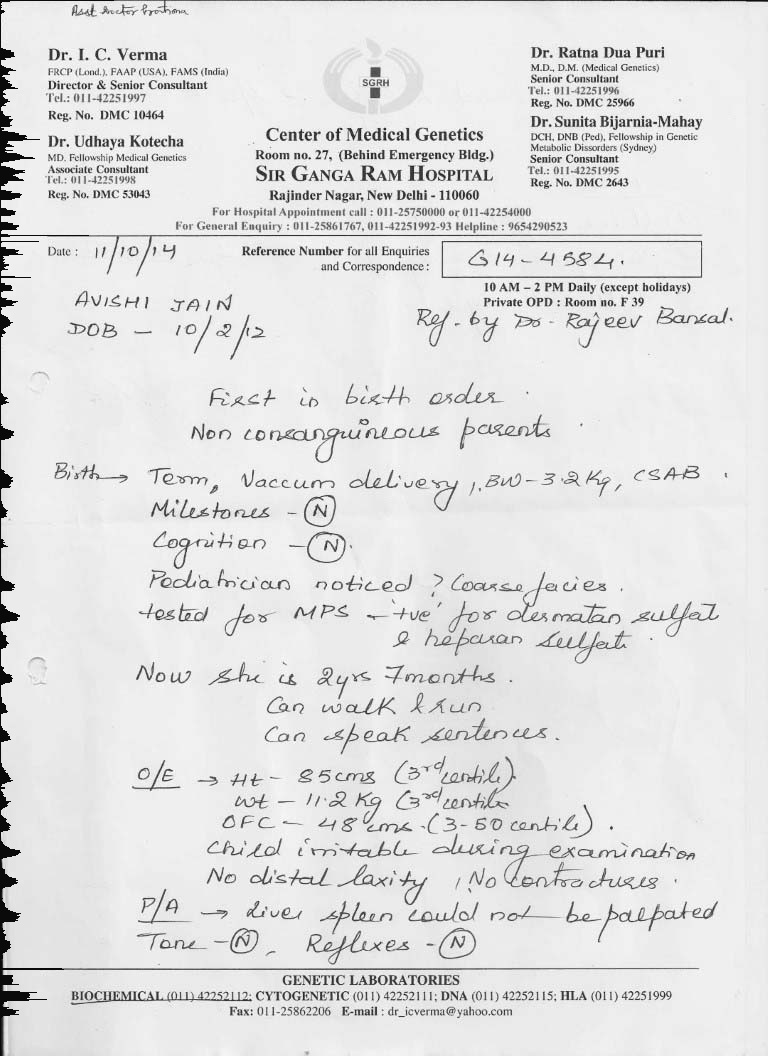 Dr. I. C. Verma
FRCP (Lond.), FAAP (USA), FAMS (India)
Director & Senior Consultant
Tel.: 011-42251997
Reg. No. DMC 10464
Dr. Udhaya Kotecha
MD. Fellowship Medical Genetics
Associate Consultant
Tel.: 011-42251998
Reg. No. DMC 53043
SGRH
Center of Medical Genetics
Room no. 27, (Behind Emergency Bldg.)
SIR GANGA RAM HOSPITAL
Rajinder Nagar, New Delhi - 110060
Dr. Ratna Dua Puri
M.D., D.M. (Medical Genetics)
Senior Consultant
Tel.: 011-42251996
Reg. No. DMC 25966
Dr. Sunita Bijarnia-Mahay
DCH, DNB (Ped), Fellowship in Genetic
Metabolic Dissorders (Sydney)
Senior Consultant
Tel.: 011-42251995
Reg. No. DMC 2643
For Hospital Appointment call : 011-25750000 or 011-42254000
For General Enquiry : 011-25861767, 011-42251992-93 Helpline : 9654290523
Date : 11/10/14
Reference Number for all Enquiries
and Correspondence :
G14-4584.
10 AM – 2 PM Daily (except holidays)
Private OPD : Room no. F 39
AVISHI JAIN
DOB - 10/2/12
Ref. by Dr. Rajeev Bansal.
First in birth order.
Non consanguineous parents
Birth → Term, Vaccum delivery, BW-3.2Kg, CSAB.
Milestones - N
Cognition - N.
Pediatrician noticed ? Coarse facies.
tested for MPS - '+ve' for desmatan sulfat
& heparan sulfat.
Now she is 2yrs 7months.
Can walk & run
Can speak sentences.
O/E → Ht - 85cms (3rd centile).
Wt - 11.2 Kg (3rd centile
OFC - 48 cms. (3-50 centile).
Child irritable during examination
No distal laxity, No contractures.
P/A → Liver spleen could not be palpated
Tone - N, Reflexes - N
GENETIC LABORATORIES
BIOCHEMICAL (011) 42252112; CYTOGENETIC (011) 42252111; DNA (011) 42252115; HLA (011) 42251999
Fax: 011-25862206 E-mail : dr_icverma@yahoo.com